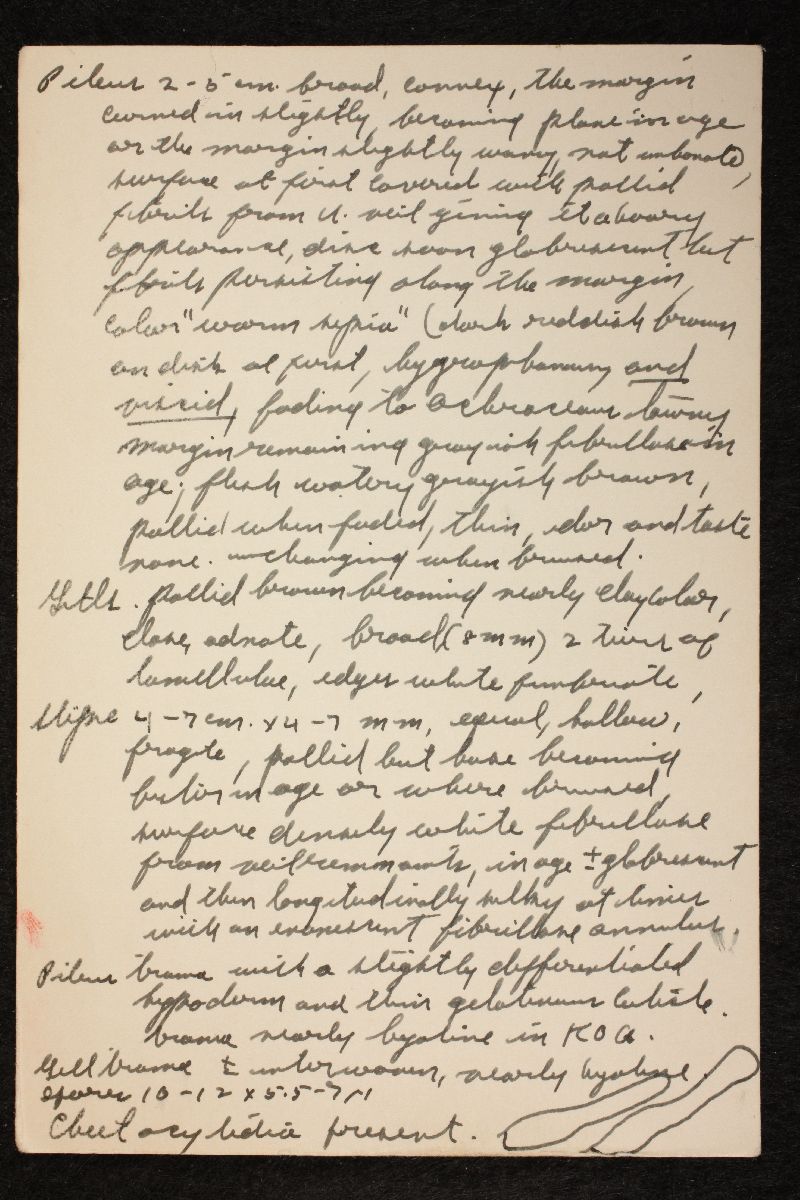 Pileus 2-5 cm. broad, convex, the margin
curved in slightly, becoming plane in age
or the margin slightly wavy, not umbonate,
surface at first covered with pallid
fibrils from u. veil giving it a hoary
appearance, disc soon glabrescent but
fibrils persisting along the margin,
color "warm sepia" (dark reddish brown
on disk at first, hygrophanous, and
viscid, fading to ochraceous tawny
margin remaining grayish fibrillose in
age; flesh watery grayish brown,
pallid when faded, thin, odor and taste
none. unchanging when bruised.
Gills. pallid brown becoming nearly clay color,
close, adnate, broad (8 mm) 2 tiers of
lamellulae, edges white fimbriate,
Stipe 4-7 cm. x 4-7 mm, equal, hollow,
fragile, pallid but base becoming
in age or where bruised,
surface densely white fibrillose
from veil remnants, in age ± glabrescent
and then longitudinally silky at times
with an evanescent fibrillose annulus.
Pileus trama with a slightly differentiated
hypoderm and thin gelatinous cuticle.
trama nearly hyaline in KOH.
Gill trama ± interwoven, nearly hyaline.
spores 10-12 x 5.5-7 µ
Cheilocystidia present.